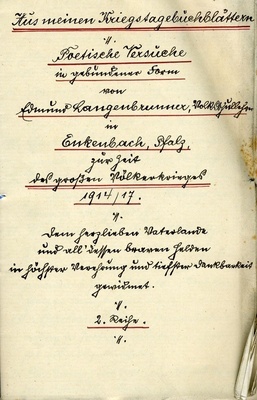 Aus meinen Kriegstagebuchblättern
"
Poetische Versuche
in gebundener Form
von
Edmund Langenbrunner, Volksschullehrer
in
Enkenbach, Pfalz,
zur Zeit
des großen Völkerkrieges
1914/17.
"
Dem herzlieben Vaterlande
und all' dessen braven Helden
in höchster Verehrung und tiefster Dankbarkeit
gewidmet.
"
2. Reihe.
"